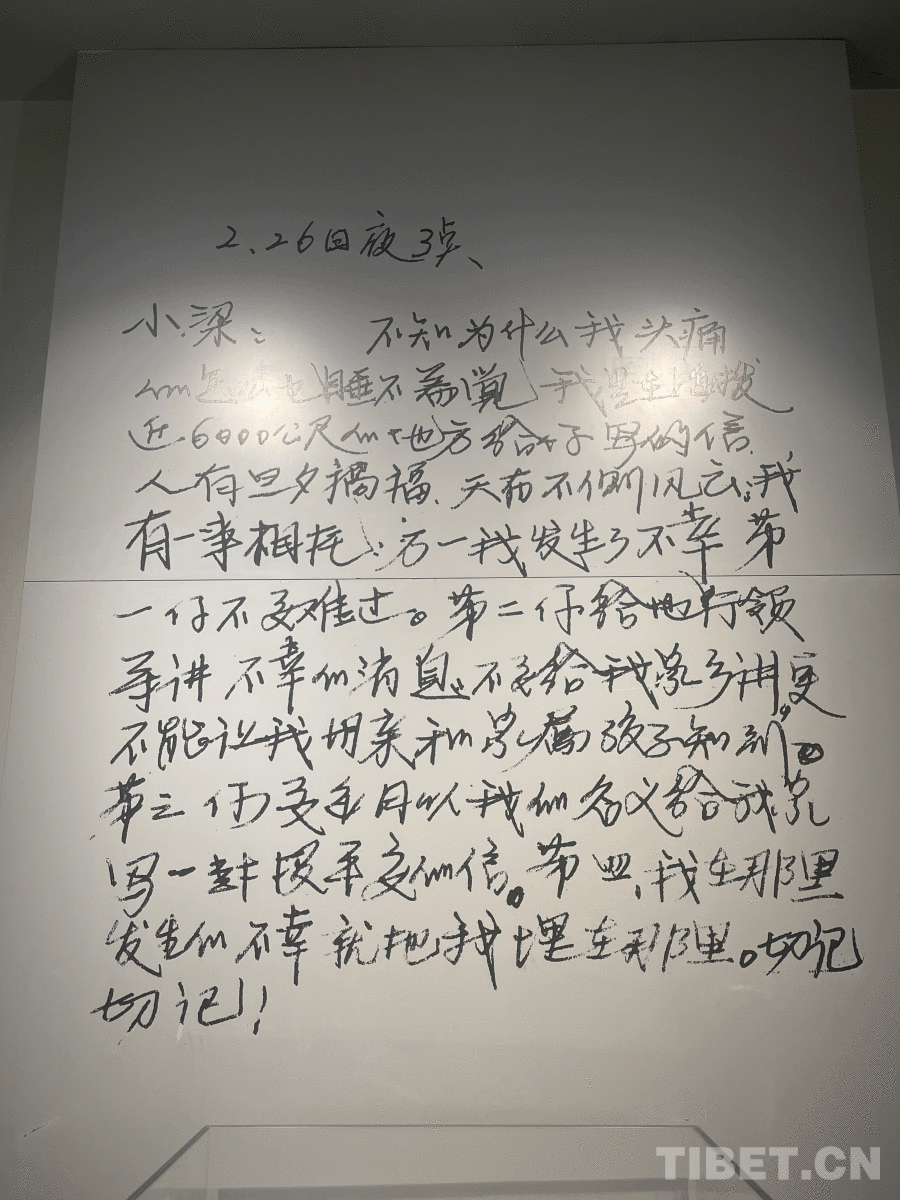 2、26日夜3点、
小梁： 不知为什么我头痛
怎么也睡不着觉 我是在海拔
近6000公尺的地方给你写的信、
人有旦夕祸福、天有不侧风云。我
有一事相托：万一我发生了不幸 第
一 你不要难过。第二你给地行领
导讲 不幸的消息。不要给我家乡讲更
不能让我母亲和家属孩子知道。
第三 你要每月以我的名义给我家
写一封报平安的信。第四，我在那里
发生的不幸就把我埋在那里。切记
切记！
TIBET.CN